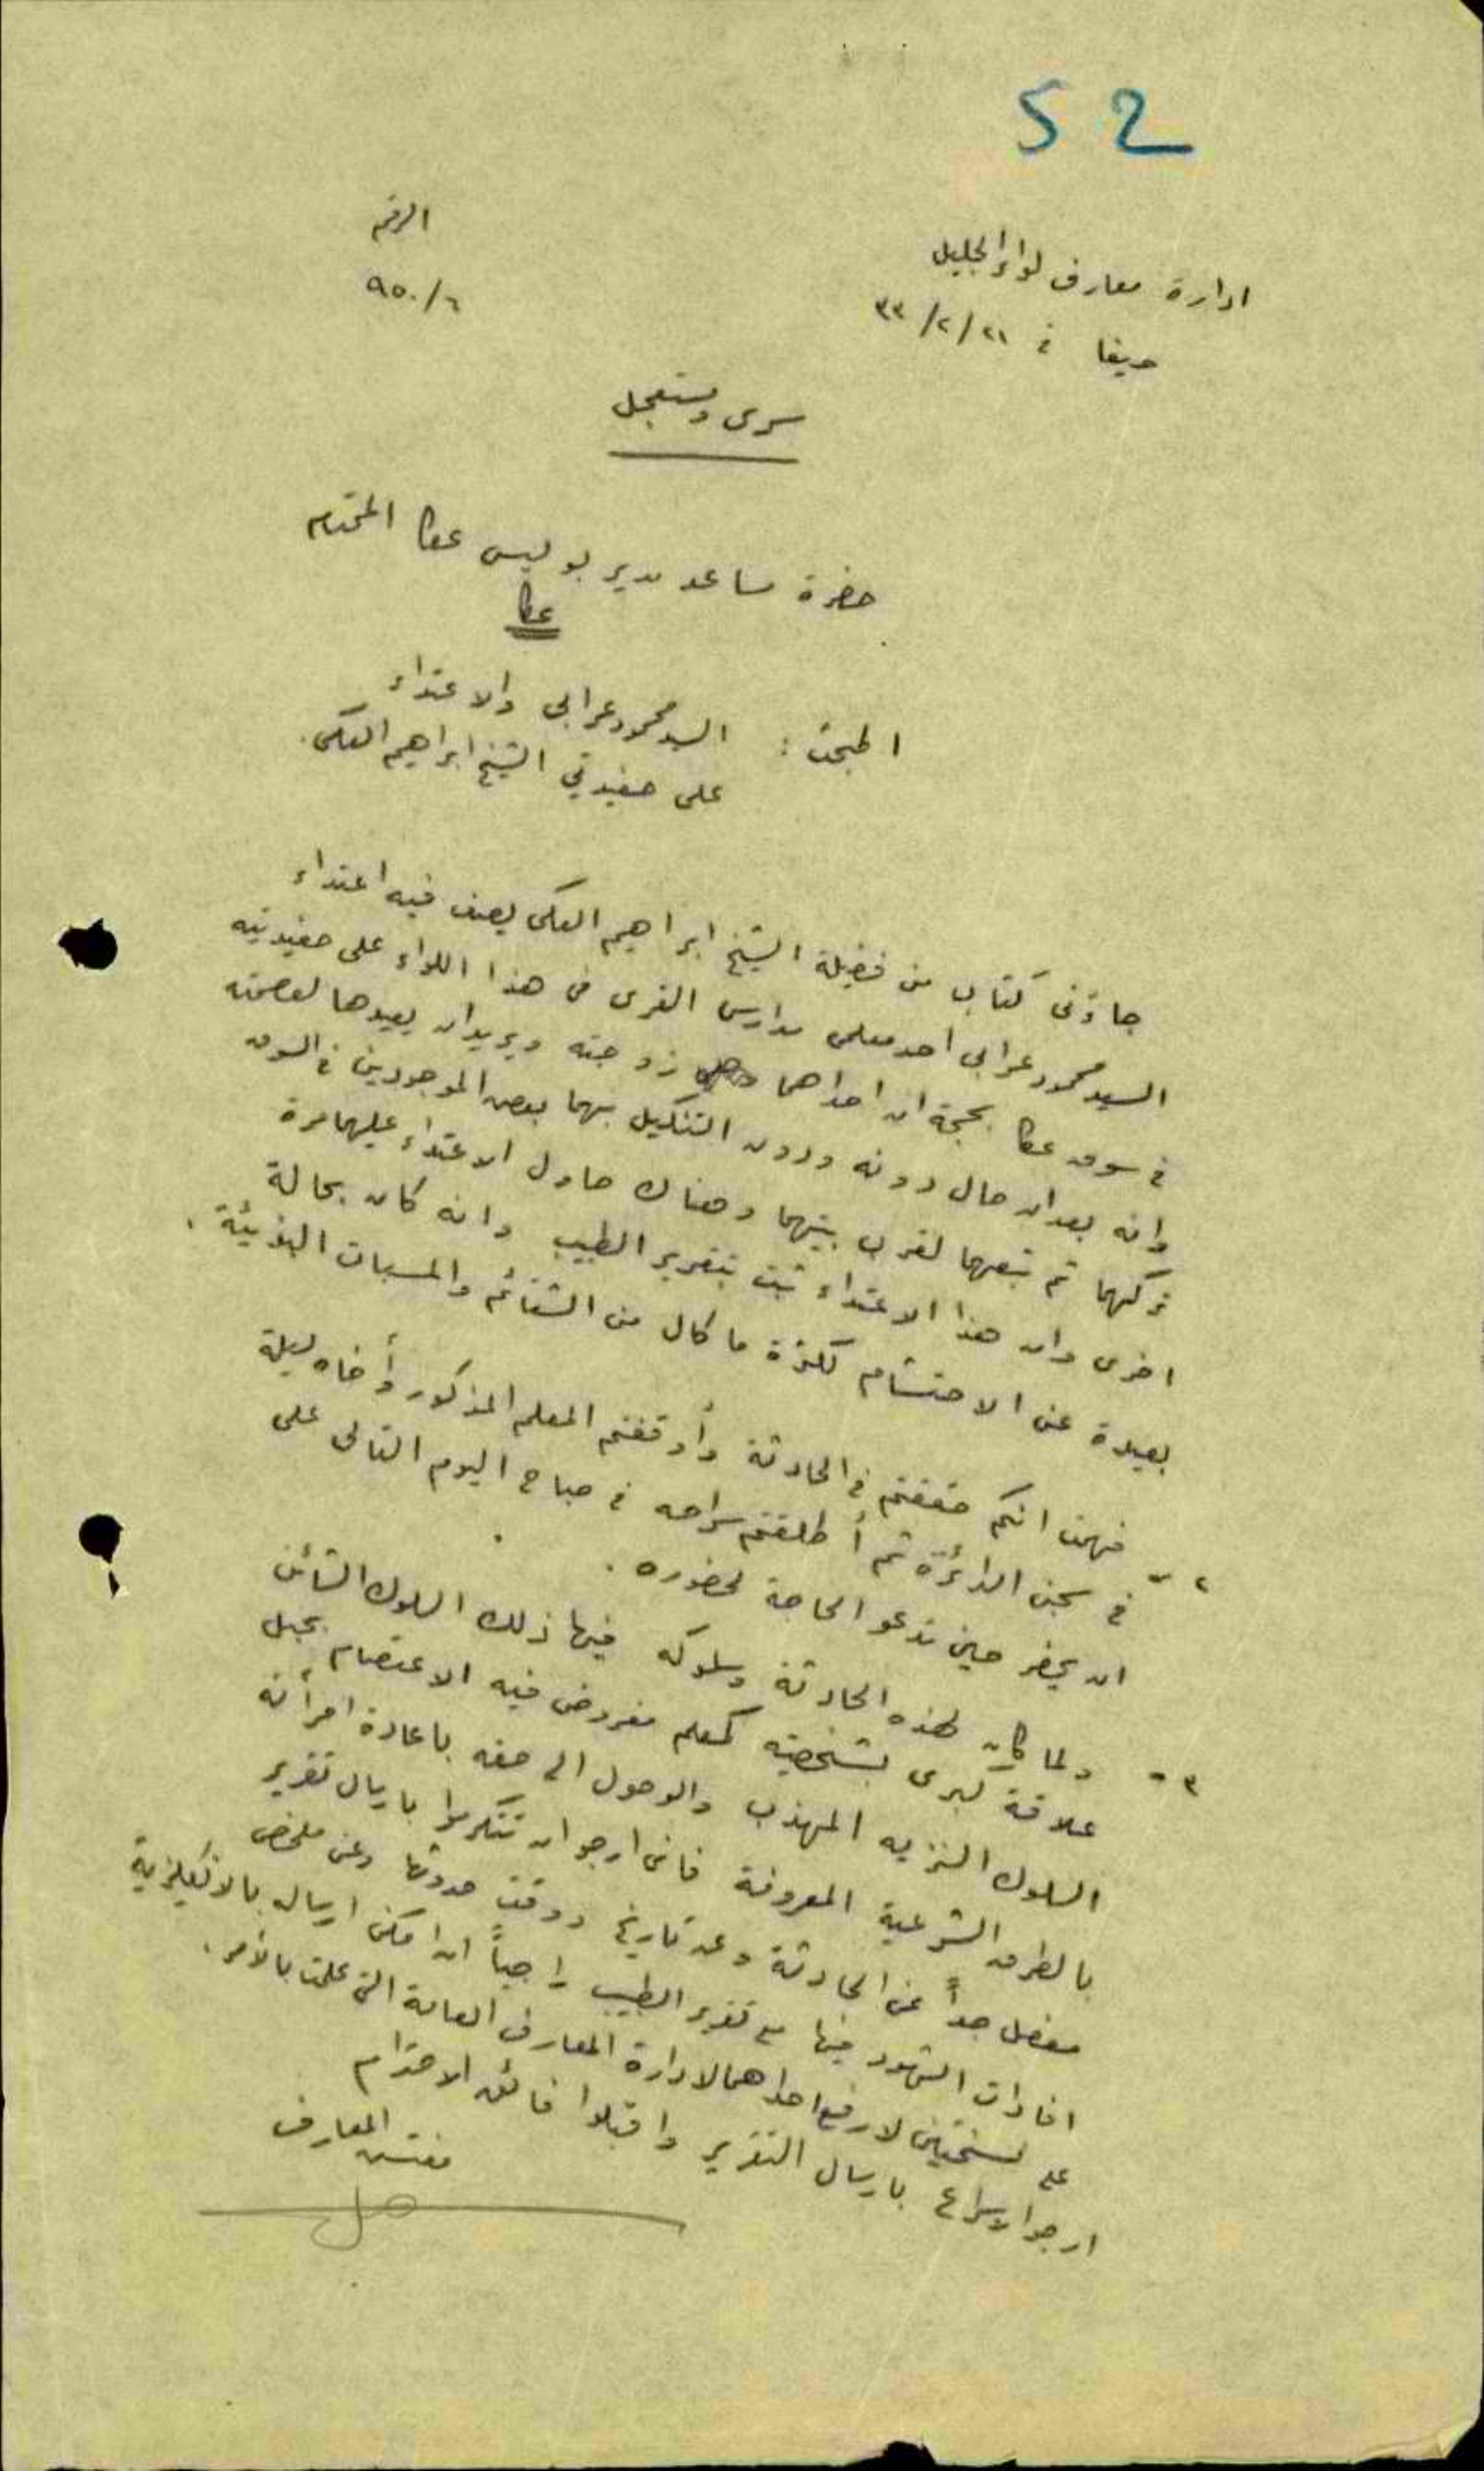 52
الرقم
٩٥٠/٦
ادارة معارف لواء الجليل
حيفا في ٢١/٢/٣٣
سري ومستعجل
حضرة مساعد مدير بوليس عكا المحترم
عكا
المبحث : السيد محمود عرابي والاعتداء
على حفيدتي الشيخ ابراهيم العكي .
جاءني كتاب من فضيلة الشيخ ابراهيم العكي يصف فيه اعتداء
السيد محمود عرابي احد معلمي مدارس القرى في هذا اللواء على حفيدتيه
في سوق عكا بحجة ان احداهما زوجته ويريد ان يعيدها لعصمته
وانه بعد ان حال دونه ودون التنكيل بهما بعض الموجودين في السوق
تركهما ثم تبعهما لقرب بيتهما وهناك حاول الاعتداء عليهما مرة
اخرى وان هذا الاعتداء ثبت بتقرير الطبيب وانه كان بحالة
بعيدة عن الاحتشام لكثرة ما كال من الشتائم والمسبات البذيئة .
٢ - فهمت انكم حققتم في الحادثة وأوقفتم المعلم المذكور وأخاه ليلة
في سجن الدائرة ثم أطلقتم سراحه في صباح اليوم التالي على
ان يحضر حين تدعو الحاجة لحضوره .
٣ - ولما كان لهذه الحادثة وسلوكه فيها ذلك السلوك الشائن
علاقة كبرى بشخصيته كمعلم مفروض فيه الاعتصام بحبل
السلوك النزيه المهذب والوصول الى حقه باعادة امرأته
بالطرق الشرعية المعروفة فاني ارجو ان تتكرموا بارسال تقرير
مفصل جداً عن الحادثة وعن تاريخ ووقت حدوثها وعن ملخص
افادات الشهود فيها مع تقرير الطبيب راجياً اذا امكن ارساله بالانكليزية
على نسختين لارفع احداهما لادارة المعارف العامة التي علمت بالأمر .
ارجو الاسراع بارسال التقرير واقبلوا فائق الاحترام
مفتش المعارف